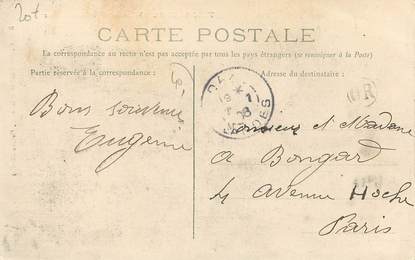 20t
CARTE POSTALE
La correspondance au recto n'est pas acceptée par tous les pays étrangers (se renseigner à la Poste)
Partie réservée à la correspondance :
Adresse du destinataire :
OR
Bons souvenirs
Eugénie
Monsieur et Madame
A Bongard
4 avenue Hoche
Paris